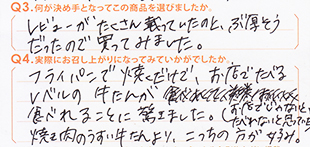 Q3.何が決め手となってこの商品を選びましたか。
レビューがたくさん載っていたのと、ぶ厚そう
だったので買ってみました。
Q4.実際にお召し上がりになってみていかがでしたか。
フライパンで焼くだけで、お店でたべる
レベルの牛たんが
食べれることに驚きました。(お店でしかないと
たべれないと思ってた
焼き肉のうすい牛たんより、こっちの方が好み。